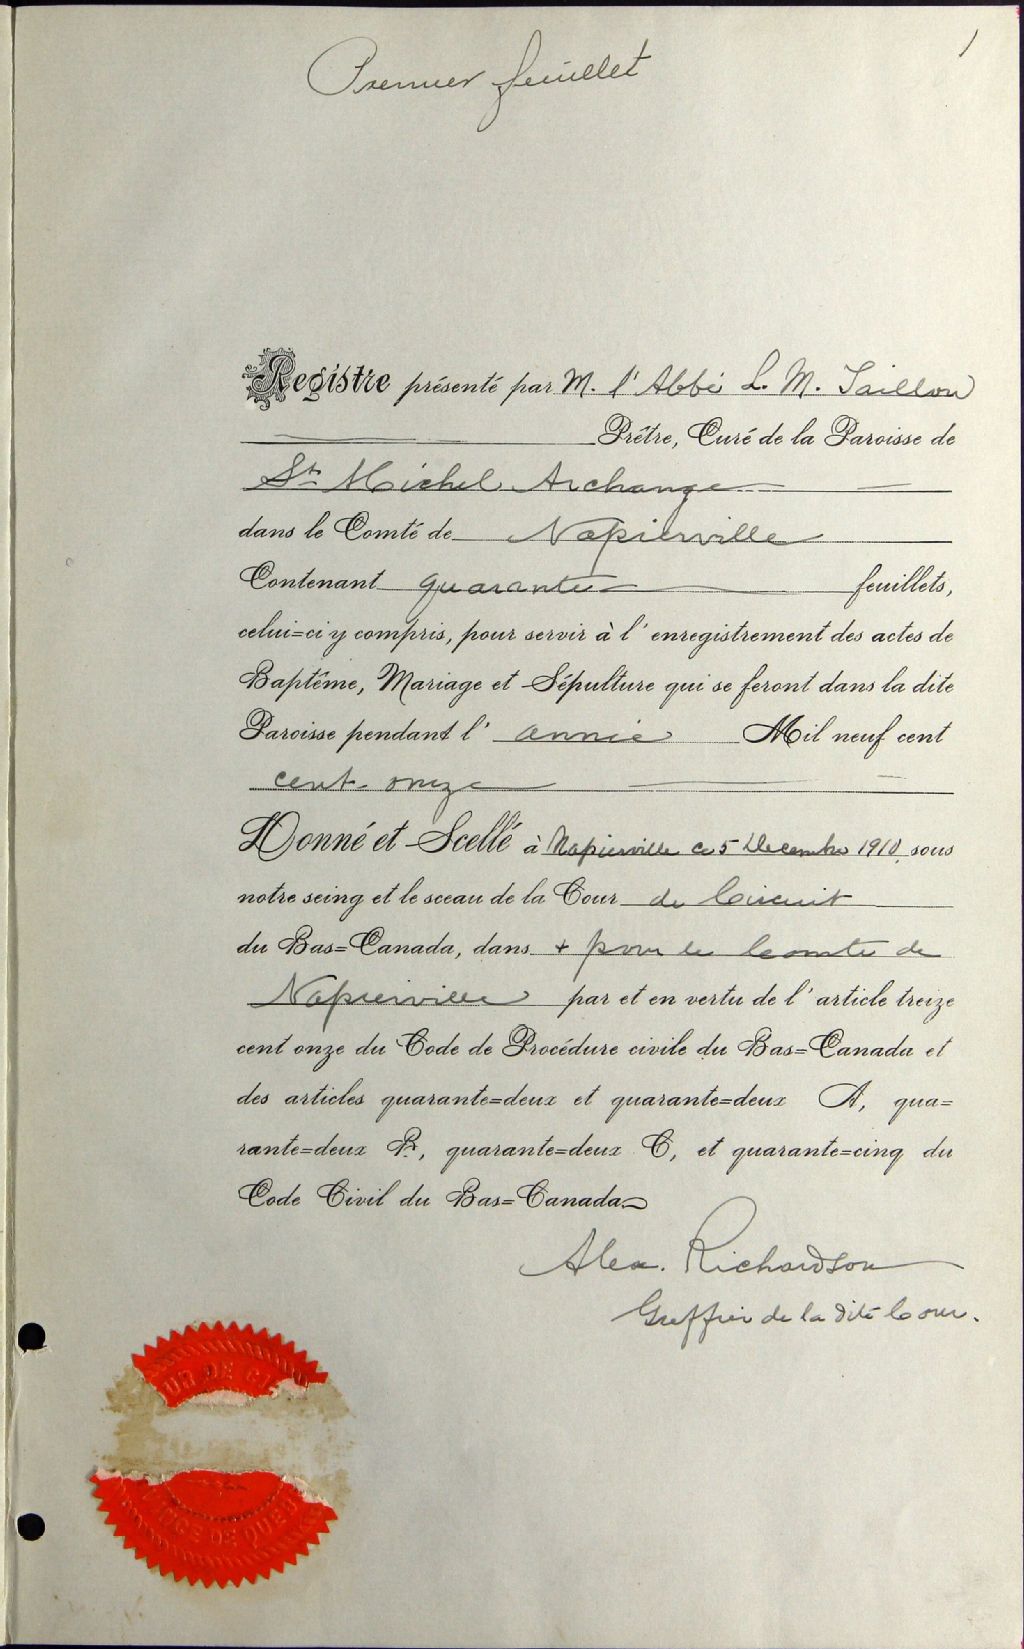 1
Premier feuillet
Registre présenté par M. l'Abbé L. M. Taillon
Prêtre, Curé de la Paroisse de
St Michel Archange
dans le Comté de Napierville
Contenant quarante feuillets,
celui=ci y compris, pour servir à l'enregistrement des actes de
Baptême, Mariage et Sépulture qui se feront dans la dite
Paroisse pendant l'année Mil neuf cent
cent onze
Donné et Scellé à Napierville ce 5 Decembre 1910 sous
notre seing et le sceau de la Cour de Circuit
du Bas=Canada, dans + pour le Comté de
Napierville par et en vertu de l'article treize
cent onze du Code de Procédure civile du Bas=Canada et
des articles quarante=deux et quarante=deux A, qua=
rante=deux B, quarante=deux C, et quarante=cinq du
Code Civil du Bas=Canada
Alex. Richardson
Greffier de la dite Cour.
UR DE C